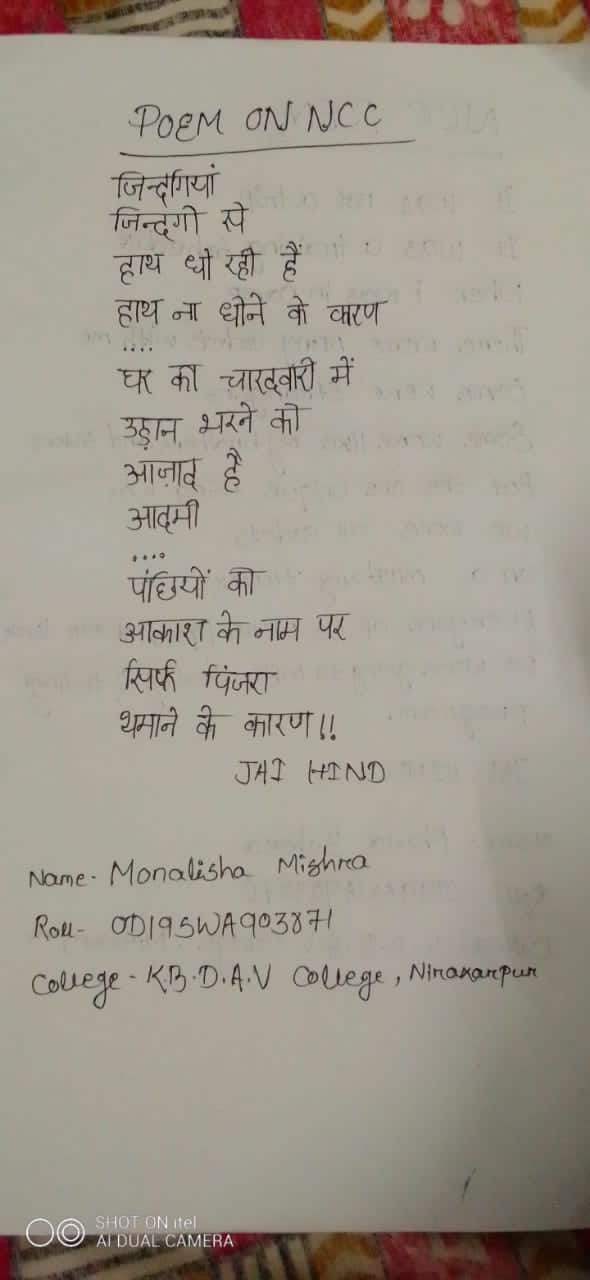 POEM ON NCC
जिन्दगियां
जिन्दगी से
हाथ धो रही हैं
हाथ ना धोने के कारण
....
घर की चारदवारी में
उड़ान भरने को
आज़ाद है
आदमी
....
पंछियों को
आकाश के नाम पर
सिर्फ पिंजरा
थमाने के कारण!!
JAI HIND
Name- Monalisha Mishra
Roll- OD19SWA903871
College- K.B.D.A.V College, Nirakarpur
SHOT ON itel
AI DUAL CAMERA